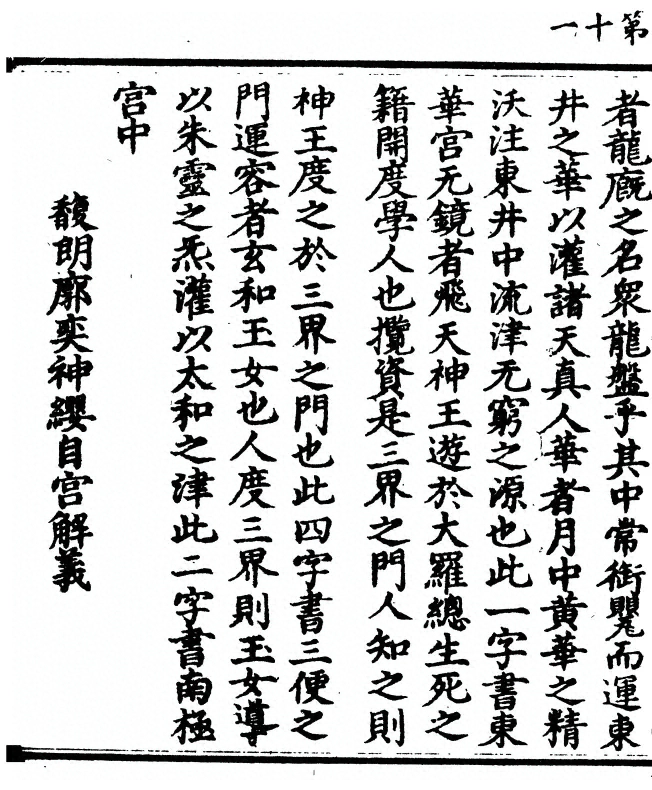 第十一
者龍廐之名衆龍盤乎其中常銜而運東
井之華以灌諸天真人華者月中黄華之精
沃注東井中流津无窮之源也此一字書東
華宫无鏡者飛天神王遊於大羅總生死之
籍開度學人也攬資是三界之門人知之則
神王度之於三界之門也此四字書三便之
門運容者玄和玉女也人度三界則玉女導
以朱靈之炁灌以太和之津此二字書南極
宫中
馥朗廓奕神纓自宫解義